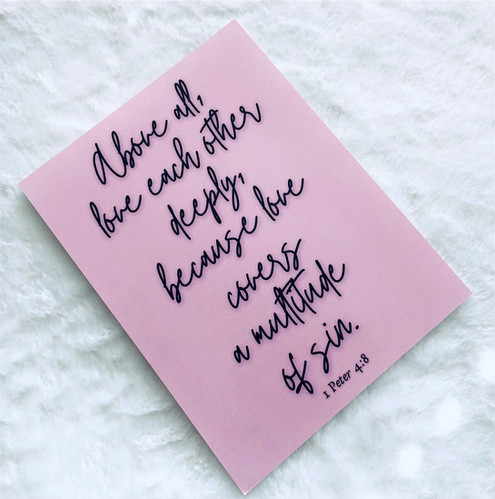 Above all,
love each other
deeply,
because love
covers
a multitude
of sin.
1 Peter 4:8